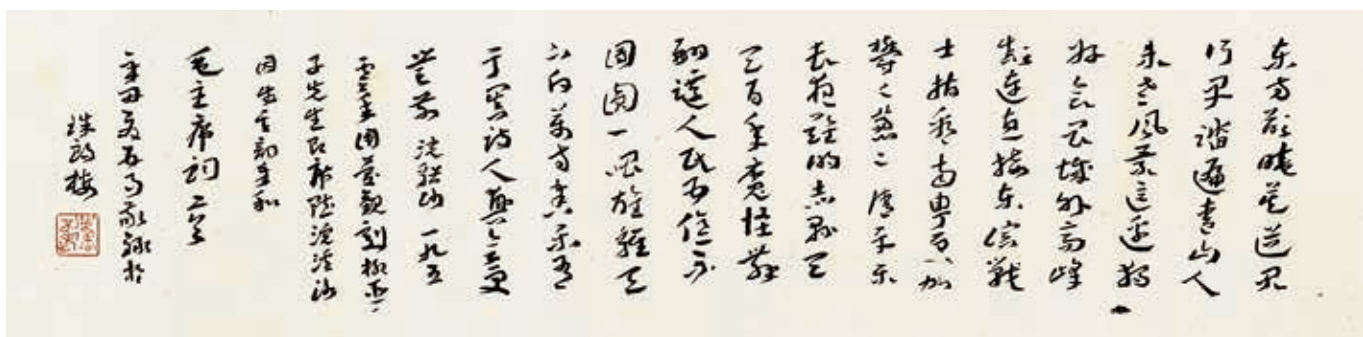 东方欲晓莫道君
行早踏遍青山人
未老风景这边独
好会昌城外高峰
颠连直接东溟战
士指看南粤更加
欝〻葱〻清平乐
长夜难明赤县天
百年魔怪舞
翩跹人民五亿不
团圆一唱雄鸡天
下白万方奏乐有
于阗诗人兴会更
无前 浣溪沙 一九五
零年国庆观剧柳亚
子先生即席赋浣溪沙
因步其韵奉和
毛主席词二首
敬录于
楼